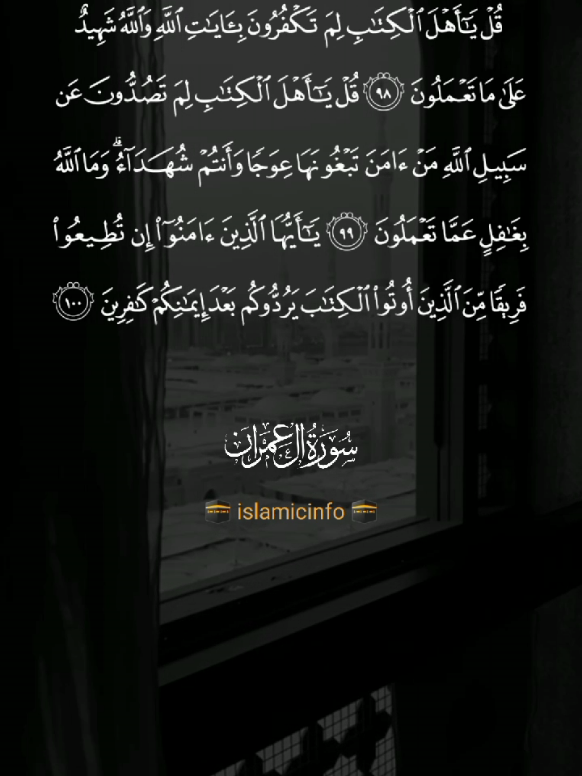 قُلۡ يَٰٓأَهۡلَ ٱلۡكِتَٰبِ لِمَ تَكۡفُرُونَ بِـَٔايَٰتِ ٱللَّهِ وَٱللَّهُ شَهِيدٌ
عَلَىٰ مَا تَعۡمَلُونَ ٩٨ قُلۡ يَٰٓأَهۡلَ ٱلۡكِتَٰبِ لِمَ تَصُدُّونَ عَن
سَبِيلِ ٱللَّهِ مَنۡ ءَامَنَ تَبۡغُونَهَا عِوَجٗا وَأَنتُمۡ شُهَدَآءُۗ وَمَا ٱللَّهُ
بِغَٰفِلٍ عَمَّا تَعۡمَلُونَ ٩٩ يَٰٓأَيُّهَا ٱلَّذِينَ ءَامَنُوٓاْ إِن تُطِيعُواْ
فَرِيقٗا مِّنَ ٱلَّذِينَ أُوتُواْ ٱلۡكِتَٰبَ يَرُدُّوكُم بَعۡدَ إِيمَٰنِكُمۡ كَٰفِرِينَ ١٠٠
سُورَةُ آلِ عِمۡرَان
🕋 islamicinfo 🕋